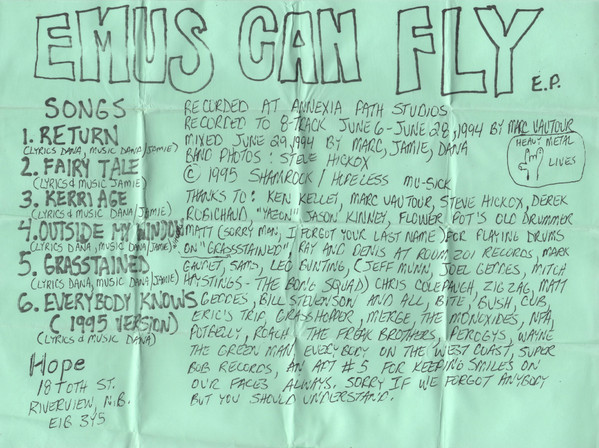 EMUS CAN FLY E.P.
SONGS
1. RETURN
(LYRICS DANA, MUSIC DANA/JAMIE)
2. FAIRY TALE
(LYRICS & MUSIC JAMIE)
3. KERRIAGE
(LYRICS DANA, MUSIC DANA/JAMIE)
4. OUTSIDE MY WINDOW
(LYRICS DANA, MUSIC DANA/JAMIE)
5. GRASSTAINED
(LYRICS DANA, MUSIC JAMIE)
6. EVERYBODY KNOWS
(1995 VERSION)
(LYRICS & MUSIC DANA)
Hope
18 TOTH ST.
RIVERVIEW, N.B.
E1B 3Y5
RECORDED AT ANNEXIA PATH STUDIOS
RECORDED TO 8-TRACK JUNE 6-JUNE 28, 1994 BY MARC VAUTOUR
MIXED JUNE 29, 1994 BY MARC, JAMIE, DANA
BAND PHOTOS: STEVE HICKOX
© 1995 SHAMROCK/HOPELESS MU-SICK
HEAVY METAL
LIVES
THANKS TO: KEN KELLEY, MARC VAUTOUR, STEVE HICKOX, DEREK
ROBICHAUD, "YAZON" JASON KINNEY, FLOWER POT'S OLD DRUMMER
MATT (SORRY MAN, I FORGOT YOUR LAST NAME) FOR PLAYING DRUMS
ON "GRASSTAINED", RAY AND DENIS AT ROOM 201 RECORDS, MARK
GAUDET, SAM'S, LEO BUNTING, (JEFF MUNN, JOEL GEDDES, MITCH
HAYSTINGS - THE BONG SQUAD) CHRIS COLEPAUGH, ZIG ZAG, MATT
GEDDES, BILL STEVENSON AND ALL, BITE, BUSH, CUB,
ERIC'S TRIP, GRASSHOPPER, MERGE, THE MONOXIDES, NFA,
POTBELLY, ROACH, THE FREAK BROTHERS, PEROGYS, WAYNE
THE GREEN MAN, EVERYBODY ON THE WEST COAST, SUPER
BOB RECORDS, AN APT #5 FOR KEEPING SMILES ON
OUR FACES ALWAYS. SORRY IF WE FORGOT ANYBODY
BUT YOU SHOULD UNDERSTAND.